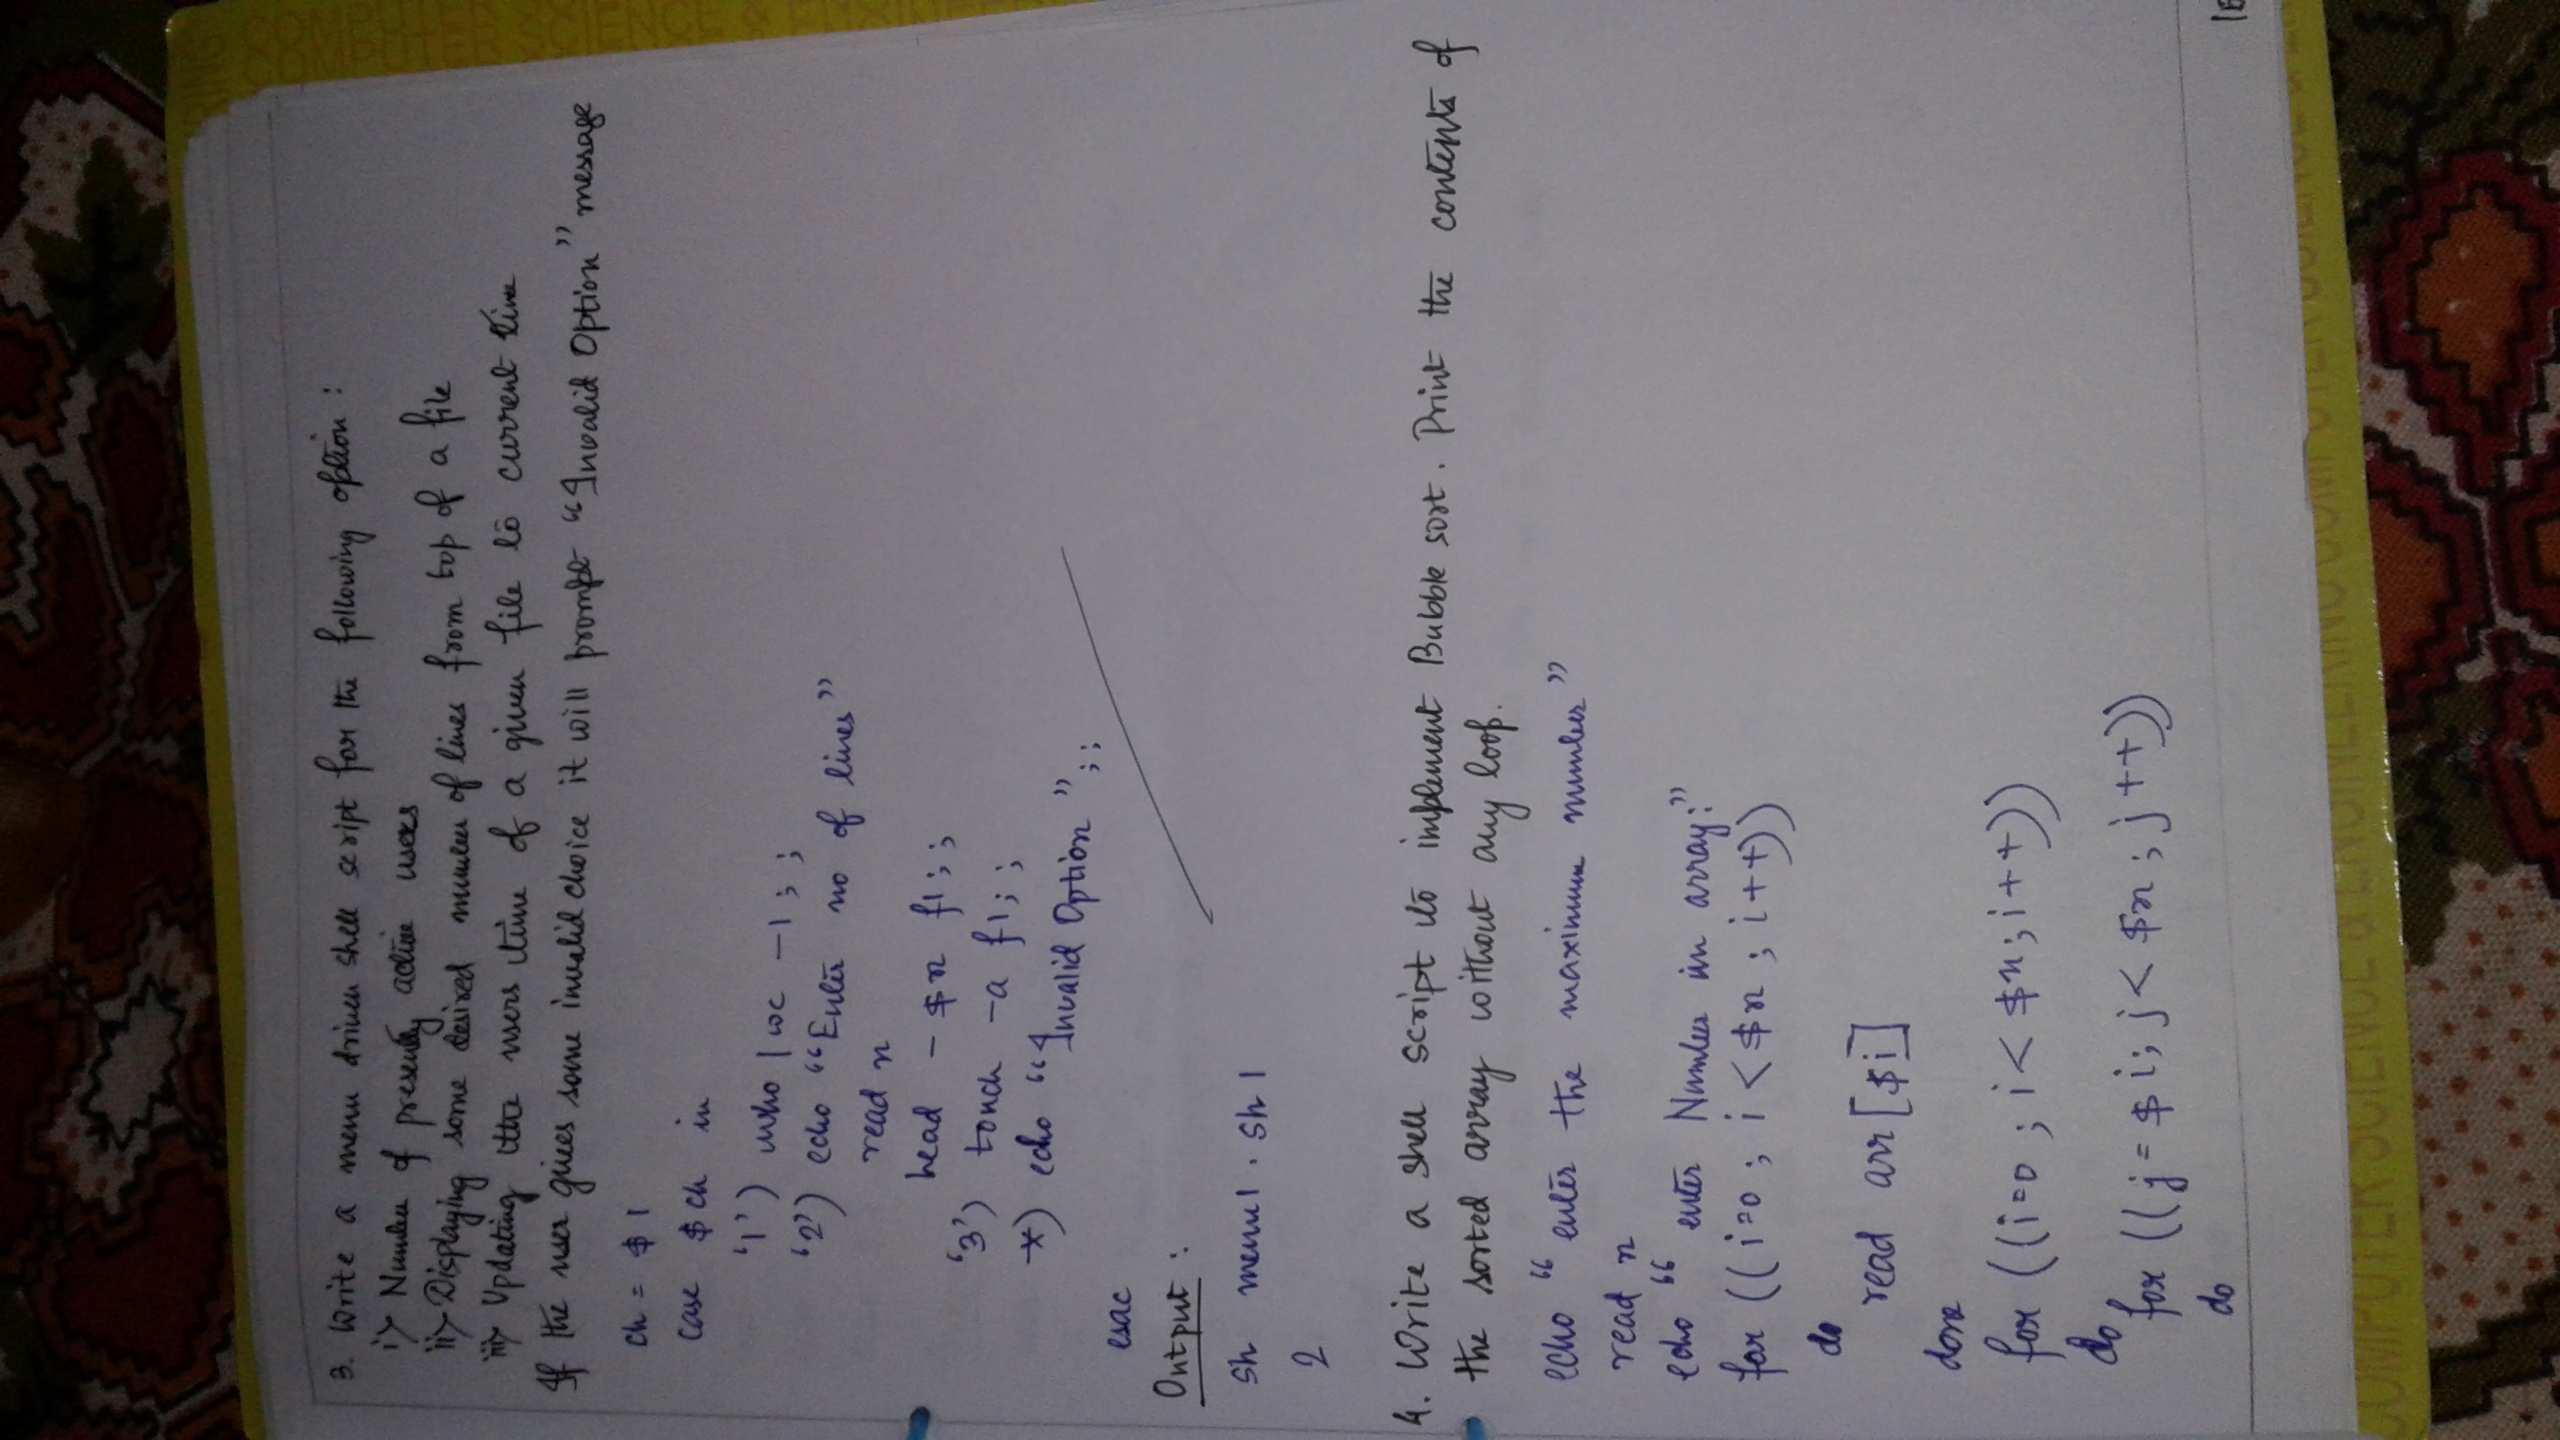 3. Write a menu driven shell script for the following option :
i> Number of presently active users
ii> Displaying some desired number of lines from top of a file
iii> Updating the users time of a given file to current time
If the user gives some invalid choice it will prompt “Invalid Option” message
ch = $1
case $ch in
‘1’) who | wc -l ; ;
‘2’) echo “Enter no of lines”
read n
head - $n f1 ; ;
‘3’) touch -a f1 ; ;
*) echo “Invalid Option” ; ;
esac
Output :
sh menu1 . sh 1
2
4. Write a shell script to implement Bubble sort. Print the contents of
the sorted array without any loop.
echo “enter the maximum number”
read n
echo “enter Number in array:”
for ((i=0 ; i < $n ; i++))
do
read arr [$i]
done
for ((i=0 ; i < $n ; i++))
do
for ((j = $i; j < $n ; j++))
do
COMPUTER SCIENCE & ENGINEERING COMPUTER SCIENCE &